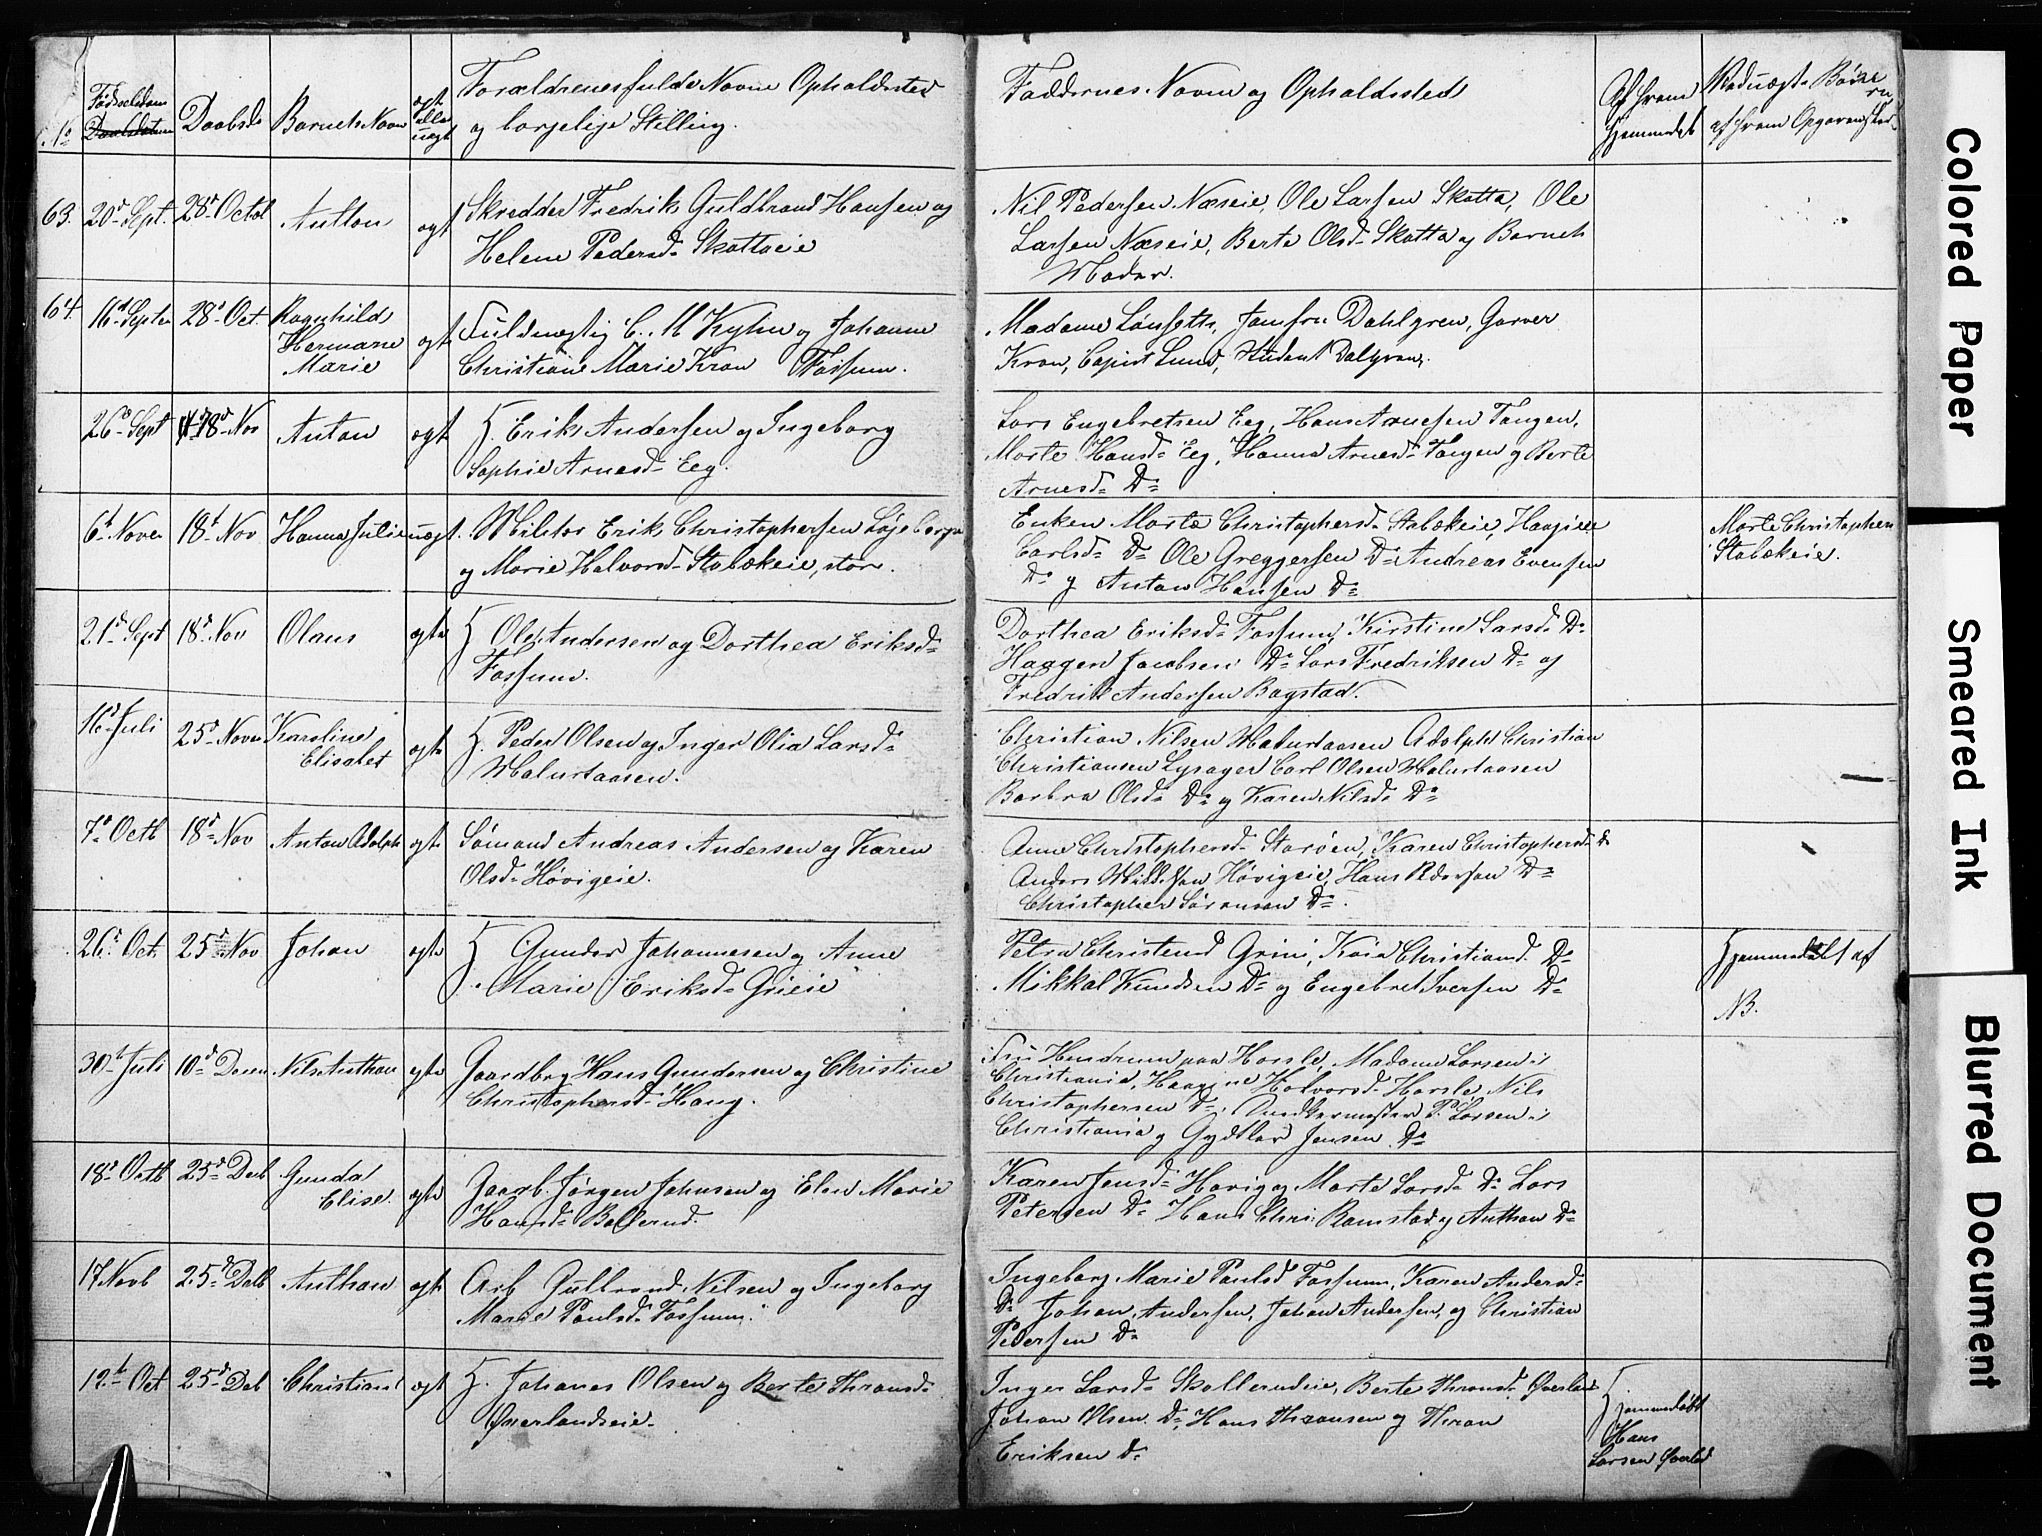 No
Fødselsdatum
Daabsda
Barnets Navn
ægt eller uægt
Forældrenes fulde Navne Opholdssted
og borgelige Stilling.
Faddernes Navne og Opholdssted
Af hvem
hjemmedøbt
Ved uægte Børn
af hvem Opgaven
63.
20d Sept.
28d Octob
Anthon
ægt
Skredder Fredrik Guldbrand Hansen og
Helene Pedersd. Skottaeie
Nil Pedersen Næseie, Ole Larsen Skotta, Ole
Larsen Næseie, Berte Olsd. Skotta og Barnets
Moder.
64.
16d Septr
28d Oct.
Ragnhild
Hermane
Marie
ægt
Fuldmægtig C. M Kyhn og Johanne
Christiane Marie Kron Fossum.
Madame Lønseth, Jomfru Dahlgren, Garver
Kron, Copist Lund, Student Dalgren,
26d Sept
18d Nov
Anton
ægt
H. Erik Andersen og Ingeborg
Sophie Arnesd. Eeg.
Lars Engebretsen Eeg, Hans Arnesen Tangen,
Marte Hansd. Eeg, Hanna Arnesd. Tangen og Berte
Arnesd. Do
6t Nover
18d Nov
Hanna Julie
uægt.
Militær Erik Christophersen
og Marie Halvorsd. Stabækeie,
Enken Marte Christophersd. Stabækeie, Haagine
Carlsd. Do Ole Greggersen Do Andreas Evensen
Do og Anton Hansen Do
Marte Christophers
Stabækeie.
21d Sept
18d Nov
Olaus
ægte
H Ole Andersen og Dorthea Eriksd.
Fossum.
Dorthea Eriksd. Fossum, Kirstine Larsd. Do
Haagen Jacobsen Do Lars Fredriksen Do og
Fredrik Andersen Bagstad.
16d Juli
25d Novr
Karoline
Elisabet
ægte
H. Peder Olsen og Inger Olia Larsd.
Malurtaasen.
Christian Nilsen Malurtaasen Adolph Christian
Christiansen Lysager Carl Olsen Malurtaasen
Barbra Olsd. Do og Karen Nilsd. Do
7d Octb
18d Nov
Anton Adolph
ægte
Sømand Andreas Andersen og Karen
Olsd. Høvigeie.
Anne Christophersd. Storøen, Karen Christophersd. Do
Anders Høvigeie, Hans Pedersen Do
Christopher Sørensen Do.
26d Oct.
25d Nov
Johan
ægte
H Gunder Johannesen og Anne
Marie Eriksd.
Petra Christensd Grini, Christiansd. Do
Mikkal Knudsen Do og Engebret Iversen Do
Hjemmedøbt af
NB.
30t Juli
10d Decem
Nils Anthon
ægte
Gaardbrg Hans Gundersen og Christine
Christophersd. Haug.
Fru paa Hasle, Madame Larsen i
Christiania, Haagine Halvorsd. Hasle, Nils
Christophersen Do, P. Larsen i
Christiania og Jensen Do
18d Octb
25d Decb
Gunda
Elise.
ægte
Gaarb. Jørgen Johnsen og Elen Marie
Hansd. Ballerud.
Karen Jensd. Høvig og Marte Larsd. Do Lars
Petersen Do Hans Chri Ramstad og Anthon Do
17 Novb
25d Decb
Anthon
ægte
Arb Gulbrand Nilsen og Ingeborg
Marie Paulsd. Fossum.
Ingeborg Marie Paulsd Fossum, Karen Andersd.
Do Johan Andersen, Johan Andersen, og Christian
Pedersen Do
12t Oct
25d Deb
Christian
ægt
H. Johanes Olsen og Berte Thronsd.
Øverlandseie.
Inger Larsd. Skollerudeie, Berte Thronsd. Øverland
Johan Olsen Do Hans Thronsen og Thron
Eriksen Do
Hjemmedøbt
Hans
Larsen Øverld
Colored Paper
Smeared Ink
Blurred Document